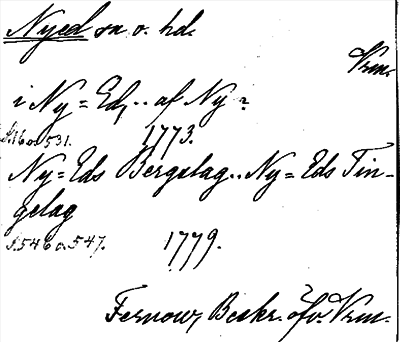 Nyed sn o. hd.
Vrm.
i Ny = Ed, .. af Ny?
S. 16 o. 531. 1773.
Ny = Eds Bergslag .. Ny = Eds Tin-
gelag
S. 546 o. 547. 1779.
Fernow, Beskr. öfv. Vrm.